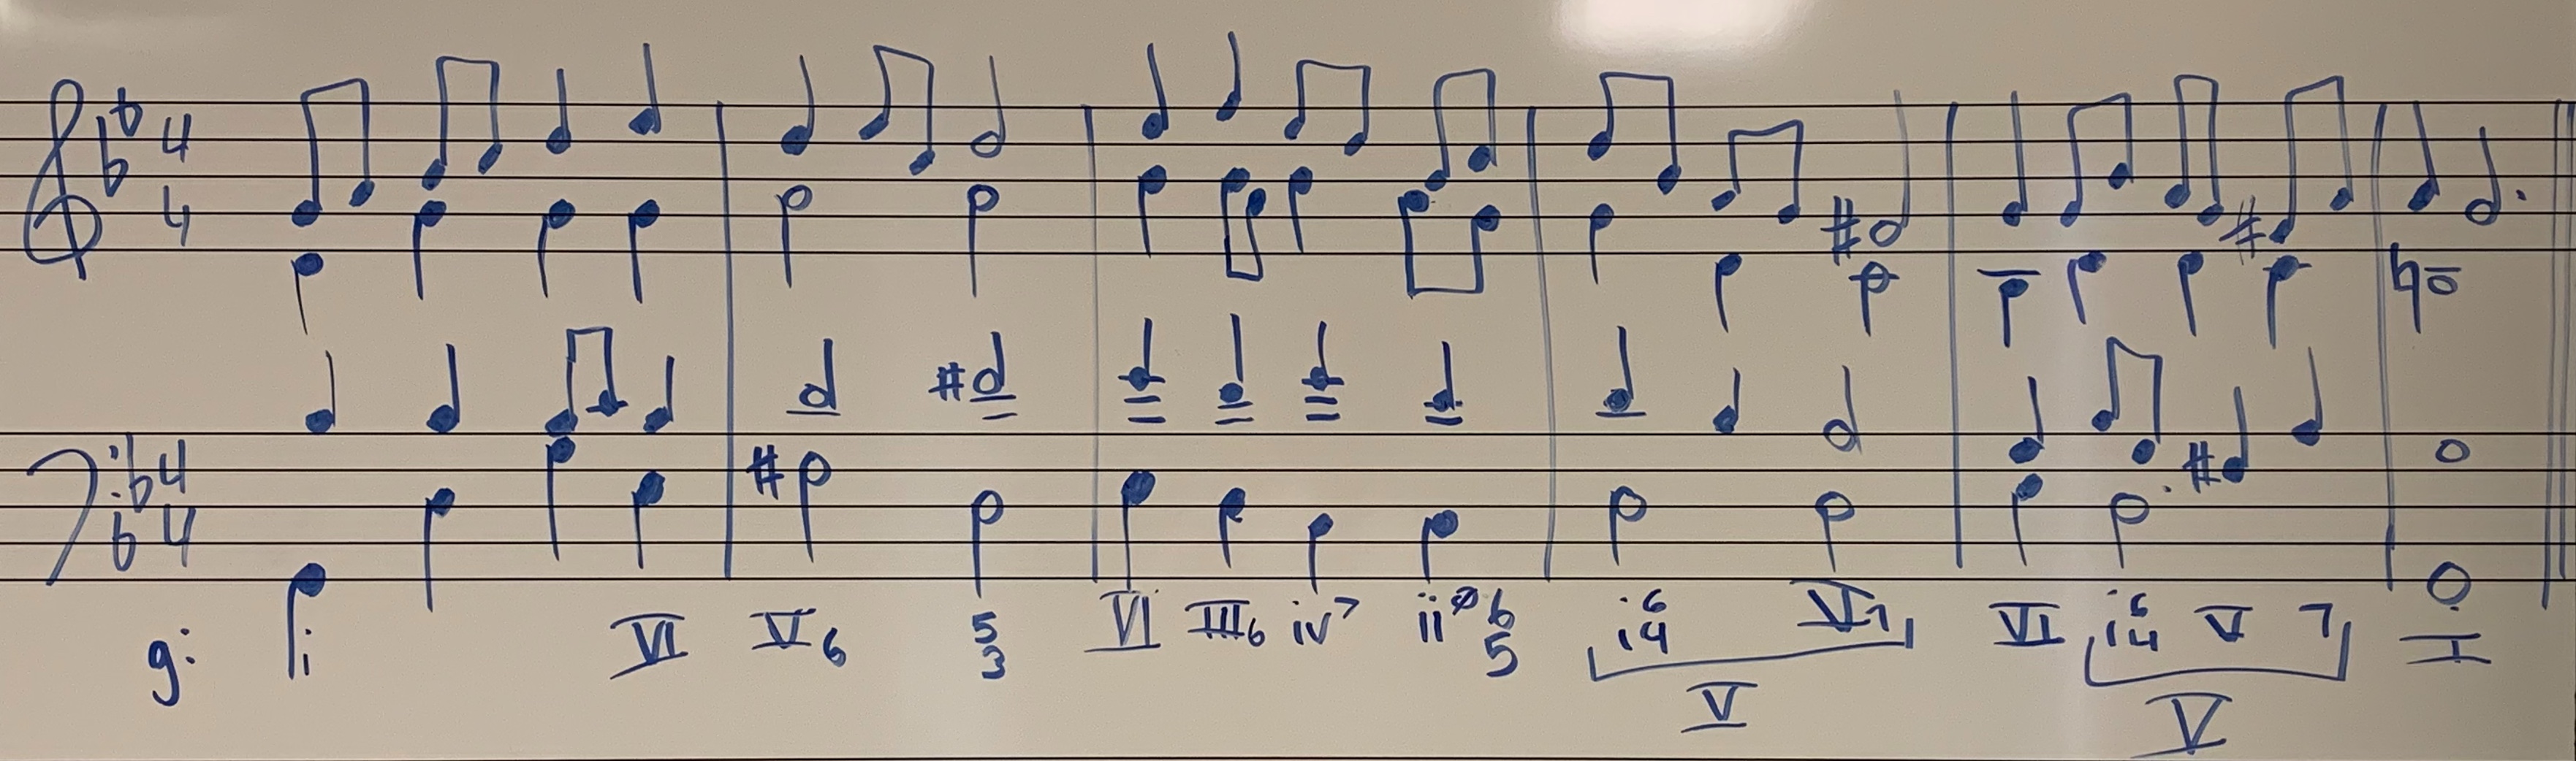 4
4
4
4
g: i VI V6 5 3 VI III6 iv7 iiø6 5 i6 4 V7 VI i6 4 V 7 I
V V